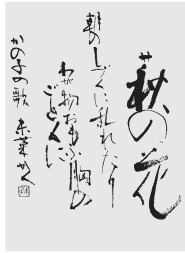 萩の花
朝のしづくに乱れたり
わが物おもふ胸の
ごとくに
かの子の歌